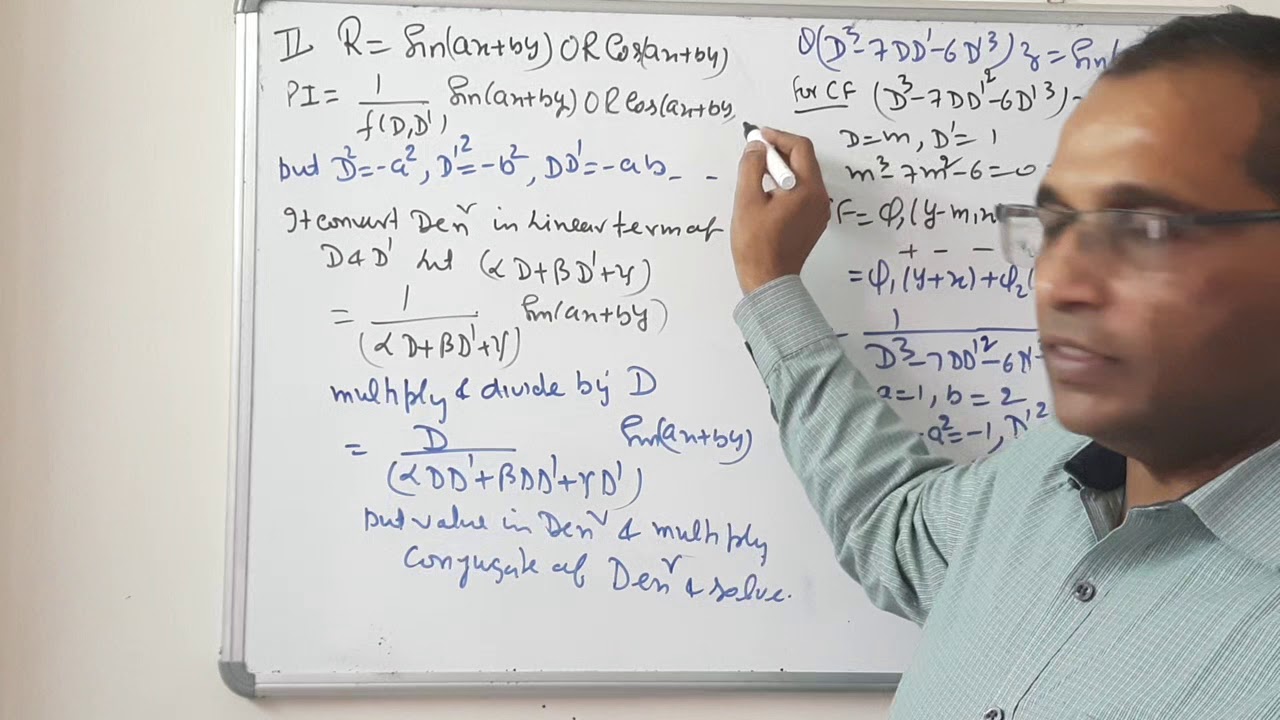 II R = Sin(ax+by) OR Cos(ax+by)
PI = 1/f(D,D') Sin(ax+by) OR Cos(ax+by
put D²=-a², D'²=-b², DD'=-ab - -
It convert Denʳ in Linear term of
D & D' let (αD+βD'+γ)
= 1/(αD+βD'+γ) Sin(ax+by)
multiply & divide by D
= D/(αDD'+βDD'+γD') Sin(ax+by)
put value in Denʳ & multiply
Conjugate of Denʳ & solve.
(D³-7DD'-6D'³)z = Sin(
for CF (D³-7DD'²-6D'³)
D=m, D'=1
m³-7m²-6=0
F=φ₁(y-m₁x
+ - -
=φ₁(y+x)+φ₂(
- 1/D³-7DD'²-6D'
a=1, b=2
-a²=-1, D'²